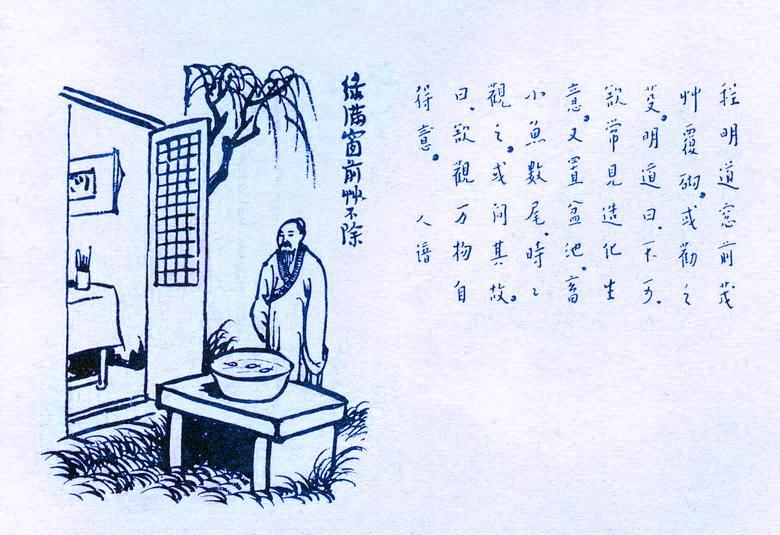 綠滿窗前艸不除
程明道窓前茂
艸覆砌。或勸之
芟。明道曰。不可。
欲常見造化生
意。又置盆池。畜
小魚數尾。時々
觀之。或问其故。
曰。欲觀万物自
得意。 人谱